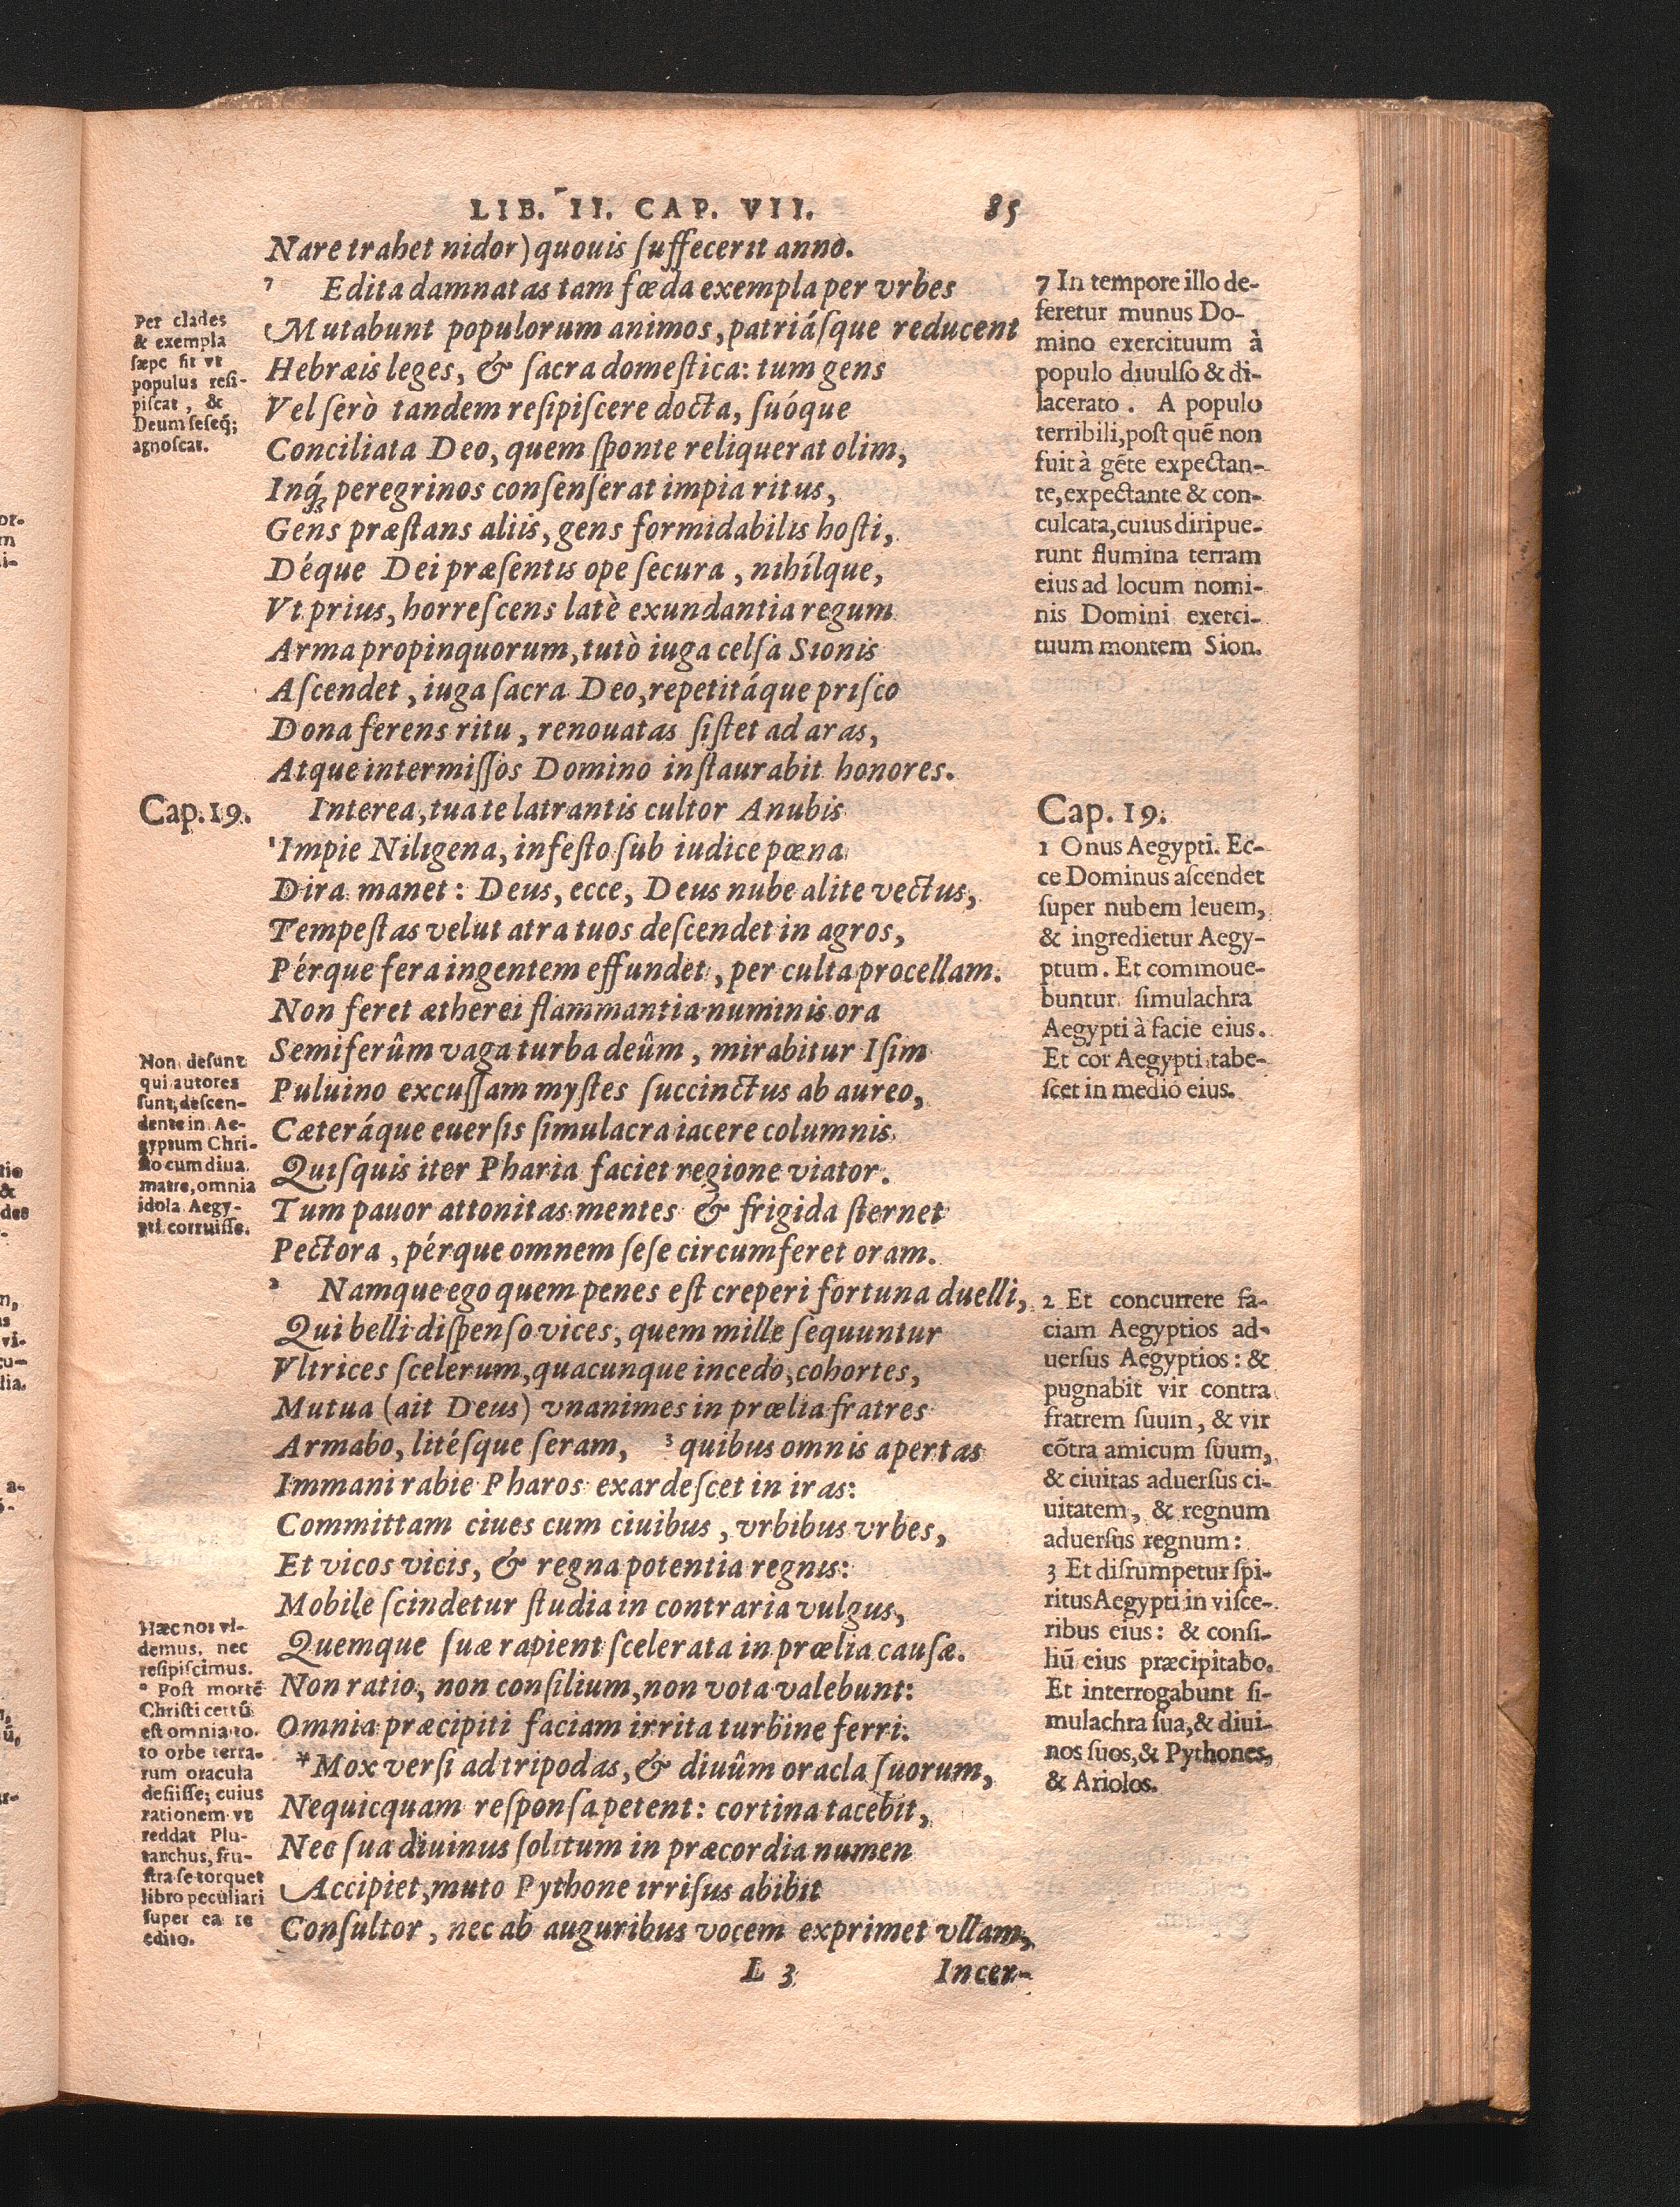 LIB. II. CAP. VII. 85
Nare trahet nidor) quouis ſuffecerit anno.
7 Edita damnatas tam fœda exempla per vrbes
Mutabunt populorum animos, patriáſque reducent
Hebræis leges, & ſacra domeſtica: tum gens
Vel ſerò tandem reſipiſcere docta, ſuóque
Conciliata Deo, quem ſponte reliquerat olim,
Inq́; peregrinos conſenſerat impia ritus,
Gens præſtans aliis, gens formidabilis hoſti,
Déque Dei præſentis ope ſecura, nihílque,
Vt prius, horreſcens latè exundantia regum
Arma propinquorum, tutò iuga celſa Sionis
Aſcendet, iuga ſacra Deo, repetitáque priſco
Dona ferens ritu, renouatas ſiſtet ad aras,
Atque intermiſſos Domino inſtaurabit honores.
Interea, tua te latrantis cultor Anubis
1 Impie Niligena, infeſto ſub iudice pœna
Dira manet: Deus, ecce, Deus nube alite vectus,
Tempeſtas velut atra tuos deſcendet in agros,
Pérque fera ingentem effundet, per culta procellam.
Non feret ætherei flammantia numinis ora
Semiferûm vaga turba deûm, mirabitur Iſim
Puluino excuſſam myſtes ſuccinctus ab aureo,
Cæteráque euerſis ſimulacra iacere columnis
Quiſquis iter Pharia faciet regione viator.
Tum pauor attonitas mentes & frigida ſternet
Pectora, pérque omnem ſeſe circumferet oram.
2 Namque ego quem penes eſt creperi fortuna duelli,
Qui belli diſpenſo vices, quem mille ſequuntur
Vltrices ſcelerum, quacunque incedo, cohortes,
Mutua (ait Deus) vnanimes in prœlia fratres
Armabo, litéſque ſeram, 3 quibus omnis apertas
Immani rabie Pharos exardeſcet in iras:
Committam ciues cum ciuibus, vrbibus vrbes,
Et vicos vicis, & regna potentia regnis:
Mobile ſcindetur ſtudia in contraria vulgus,
Quemque ſuæ rapient ſcelerata in prœlia cauſæ.
Non ratio, non conſilium, non vota valebunt:
Omnia præcipiti faciam irrita turbine ferri.
* Mox verſi ad tripodas, & diuûm oracla ſuorum,
Nequicquam reſponſa petent: cortina tacebit,
Nec ſua diuinus ſolitum in præcordia numen
Accipiet, muto Pythone irriſus abibit
Conſultor, nec ab auguribus vocem exprimet vllam,
L 3 Incer-
Per clades
& exempla
ſæpe fit vt
populus reſi-
piſcat, &
Deum ſeſeq́;
agnoſcat.
Cap. 19.
Non deſunt
qui autores
ſunt, deſcen-
dente in Ae-
gyptum Chri-
ſto cum diua
matre, omnia
idola Aegy-
pti corruiſſe.
Hæc nos vi-
demus, nec
reſipiſcimus.
* Poſt mortē
Chriſti certū
eſt omnia to-
to orbe terra-
rum oracula
deſiiſſe; cuius
rationem vt
reddat Plu-
tarchus, fru-
ſtra ſe torquet
libro peculiari
ſuper ea re
edito.
7 In tempore illo de-
feretur munus Do-
mino exercituum à
populo diuulſo & di-
lacerato. A populo
terribili, poſt quē non
fuit à gēte expectan-
te, expectante & con-
culcata, cuius diripue-
runt flumina terram
eius ad locum nomi-
nis Domini exerci-
tuum montem Sion.
Cap. 19.
1 Onus Aegypti. Ec-
ce Dominus aſcendet
ſuper nubem leuem,
& ingredietur Aegy-
ptum. Et commoue-
buntur ſimulachra
Aegypti à facie eius.
Et cor Aegypti tabe-
ſcet in medio eius.
2 Et concurrere fa-
ciam Aegyptios ad-
uerſus Aegyptios: &
pugnabit vir contra
fratrem ſuum, & vir
cōtra amicum ſuum,
& ciuitas aduerſus ci-
uitatem, & regnum
aduerſus regnum:
3 Et diſrumpetur ſpi-
ritus Aegypti in viſce-
ribus eius: & conſi-
liū eius præcipitabo.
Et interrogabunt ſi-
mulachra ſua, & diui-
nos ſuos, & Pythones,
& Ariolos.